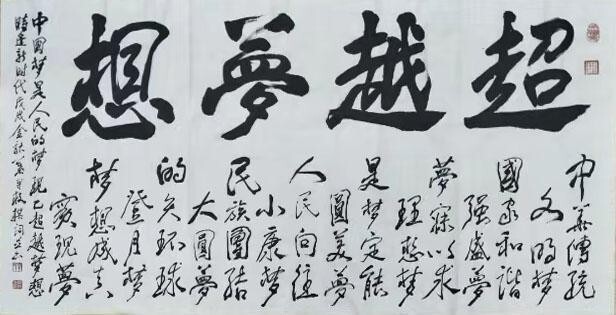 超越夢想
中華傳統
文明梦
國家和諧
強盛夢
夢寐以求
理想梦
是梦定能
圓美夢
人民向往
小康梦
民族團结
大圓夢
环球
登月梦
梦想成真
實現夢
中国梦是人民的梦现已超越梦想
時逢新时代戊戌金秋敬撰词并书